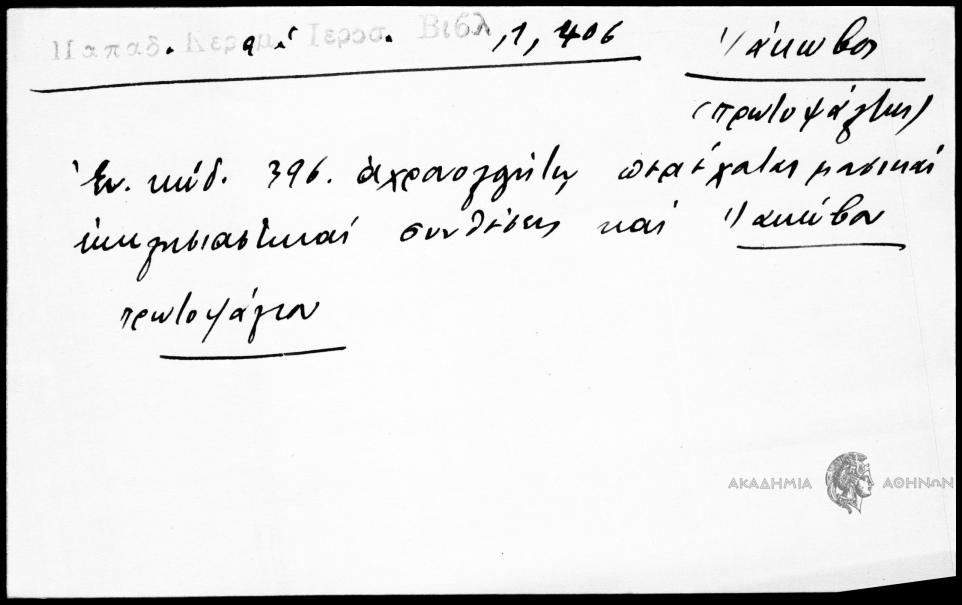 Παπαδ. Κεραμ. Ιεροσ. Βιβλ ,1, 406
Ἰάκωβος
(πρωτοψάλτης)
Ἐν κώδ. 396. ἀχρονολογήτῳ περιέχονται μουσικαί
ἐκκλησιαστικαί συνθέσεις καί Ἰακώβου
πρωτοψάλτου
ΑΚΑΔΗΜΙΑ ΑΘΗΝΩΝ